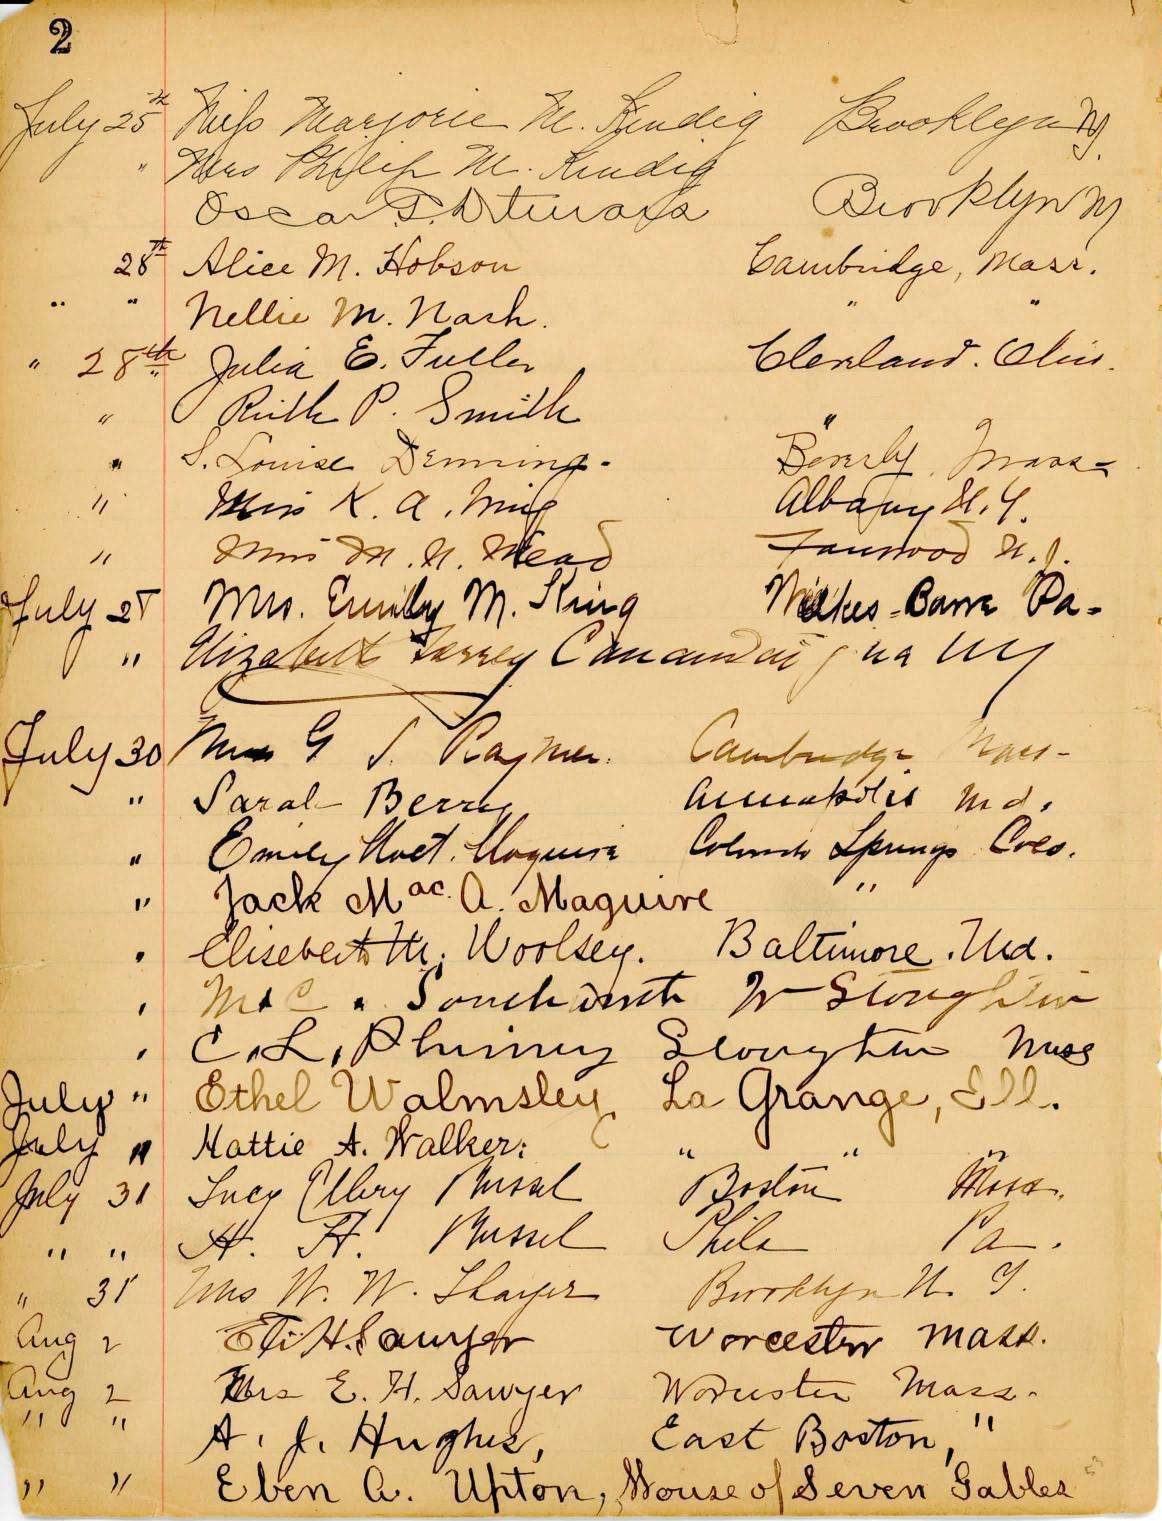 2
July 25th Miss Marjorie M. Kindig Brooklyn NY.
" Mrs Philip M. Kindig
Oscar Brooklyn NY
28th Alice M. Hobson Cambridge, Mass.
" " Nellie M. Nash. " "
" 28th Julia E. Fuller Cleveland. Ohio.
" Ruth P. Smith "
" S. Louise Denning. Beverly Mass
" Miss K. A. Ming Albany N.Y.
" Miss M. N. Mead Fanwood N.J.
July 28 Mrs. Emily M. King Wilkes-Barre Pa-
" Elizabeth Torrey Canandaigua NY
July 30 G S. Raymer. Cambridge Mass-
" Sarah Berry Annapolis Md.
" Emily Hoet. Maguire Colorado Springs Colo.
" Jack Mac. A. Maguire "
" Elisebeth M. Woolsey. Baltimore. Md.
" C. Southworth W Stoughton
" C. L. Phinney Stoughton Mass
July " Ethel Walmsley La Grange, Ill.
July " Hattie A. Walker. " " "
July 31 Lucy Ellery Russel Boston Mass.
" " H. H. Russel Phila Pa.
" 31 Mrs W. W. Thayer Brooklyn N. Y.
Aug 2 Eli H. Sawyer Worcester Mass.
Aug 2 Mrs E. H. Sawyer Worcester Mass.
" " A. J. Hughes, East Boston, "
" " Eben A. Upton, House of Seven Gables